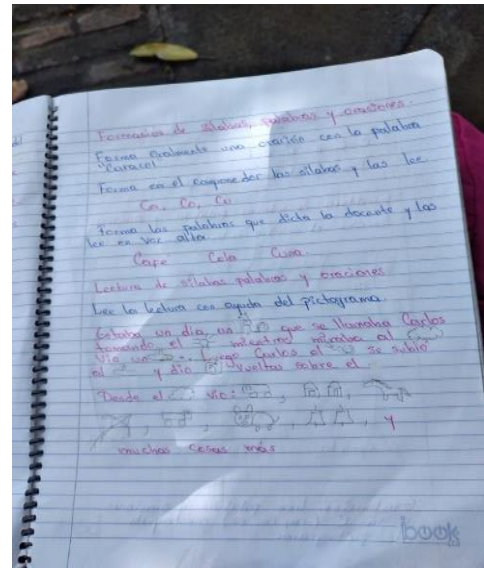 Formación de sílabas, palabras y oraciones.
Forma oralmente una oración con la palabra
"Caracol"
Forma en el componedor las sílabas y las lee
Ca, Co, Cu
Forma las palabras que dicta la docente y las
lee en voz alta
Café Cola Cuna
Lectura de sílabas palabras y oraciones
Lee la lectura con ayuda del pictograma.
Estaba un día, un que se llamaba Carlos
tomando el mientras miraba al
Vio un Luego Carlos el se subió
al y dio vueltas sobre el
Desde el vio:
y
muchas cosas más
book